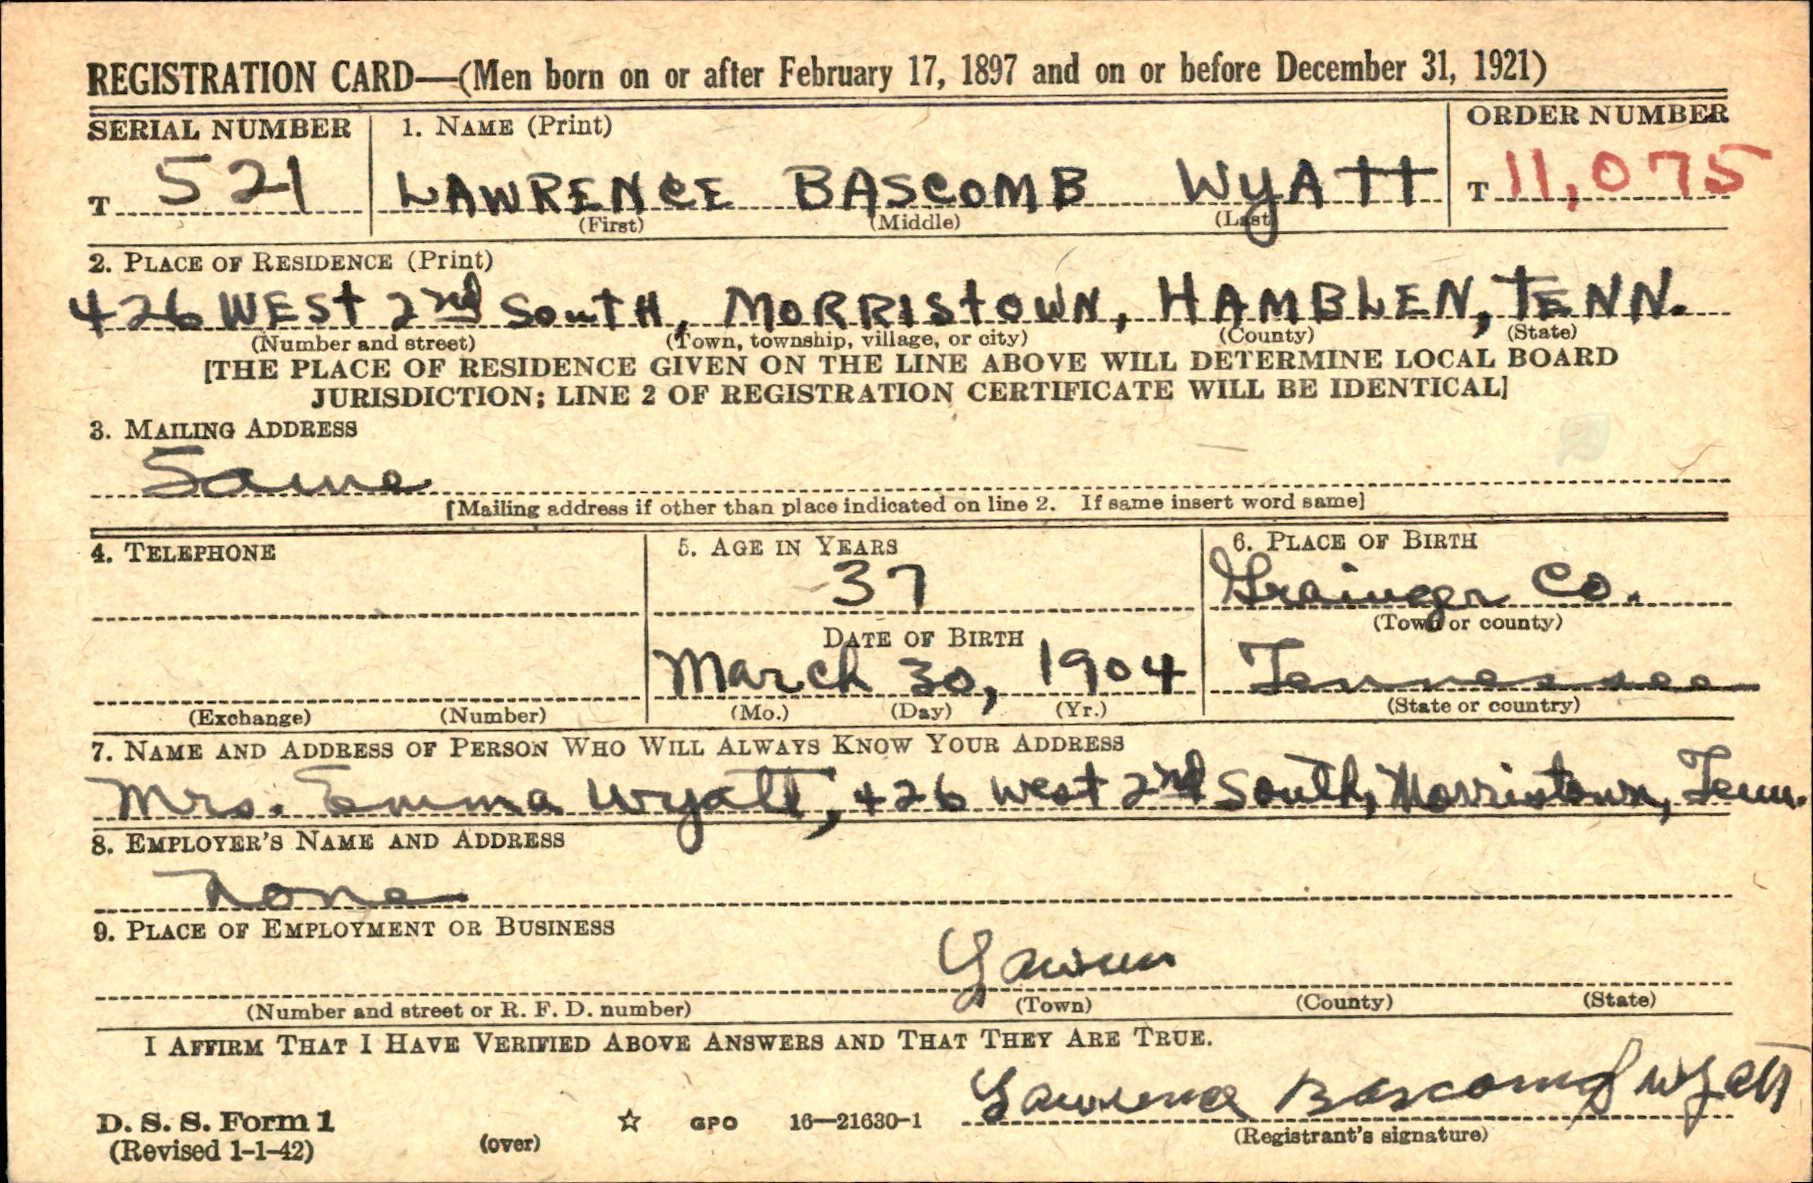 REGISTRATION CARD—(Men born on or after February 17, 1897 and on or before December 31, 1921)
SERIAL NUMBER
1. NAME (Print)
ORDER NUMBER
T 521
LAWRENCE BASCOMB WYATT
T 11,075
(First) (Middle) (Last)
2. PLACE OF RESIDENCE (Print)
426 WEST 2nd SOUTH, MORRISTOWN, HAMBLEN, TENN.
(Number and street) (Town, township, village, or city) (County) (State)
[THE PLACE OF RESIDENCE GIVEN ON THE LINE ABOVE WILL DETERMINE LOCAL BOARD
JURISDICTION; LINE 2 OF REGISTRATION CERTIFICATE WILL BE IDENTICAL]
3. MAILING ADDRESS
Same
[Mailing address if other than place indicated on line 2. If same insert word same]
4. TELEPHONE
5. AGE IN YEARS
6. PLACE OF BIRTH
37
Grainger Co.
(Town or county)
DATE OF BIRTH
March 30, 1904
Tennessee
(Exchange) (Number)
(Mo.) (Day) (Yr.)
(State or country)
7. NAME AND ADDRESS OF PERSON WHO WILL ALWAYS KNOW YOUR ADDRESS
Mrs. Emma Wyatt, 426 West 2nd South, Morristown, Tenn.
8. EMPLOYER'S NAME AND ADDRESS
None
9. PLACE OF EMPLOYMENT OR BUSINESS
(Number and street or R. F. D. number) (Town) (County) (State)
I AFFIRM THAT I HAVE VERIFIED ABOVE ANSWERS AND THAT THEY ARE TRUE.
Lawrence Bascomb Wyatt
D. S. S. Form 1
(Revised 1-1-42)
(over)
☆ GPO 16—21630-1
(Registrant's signature)